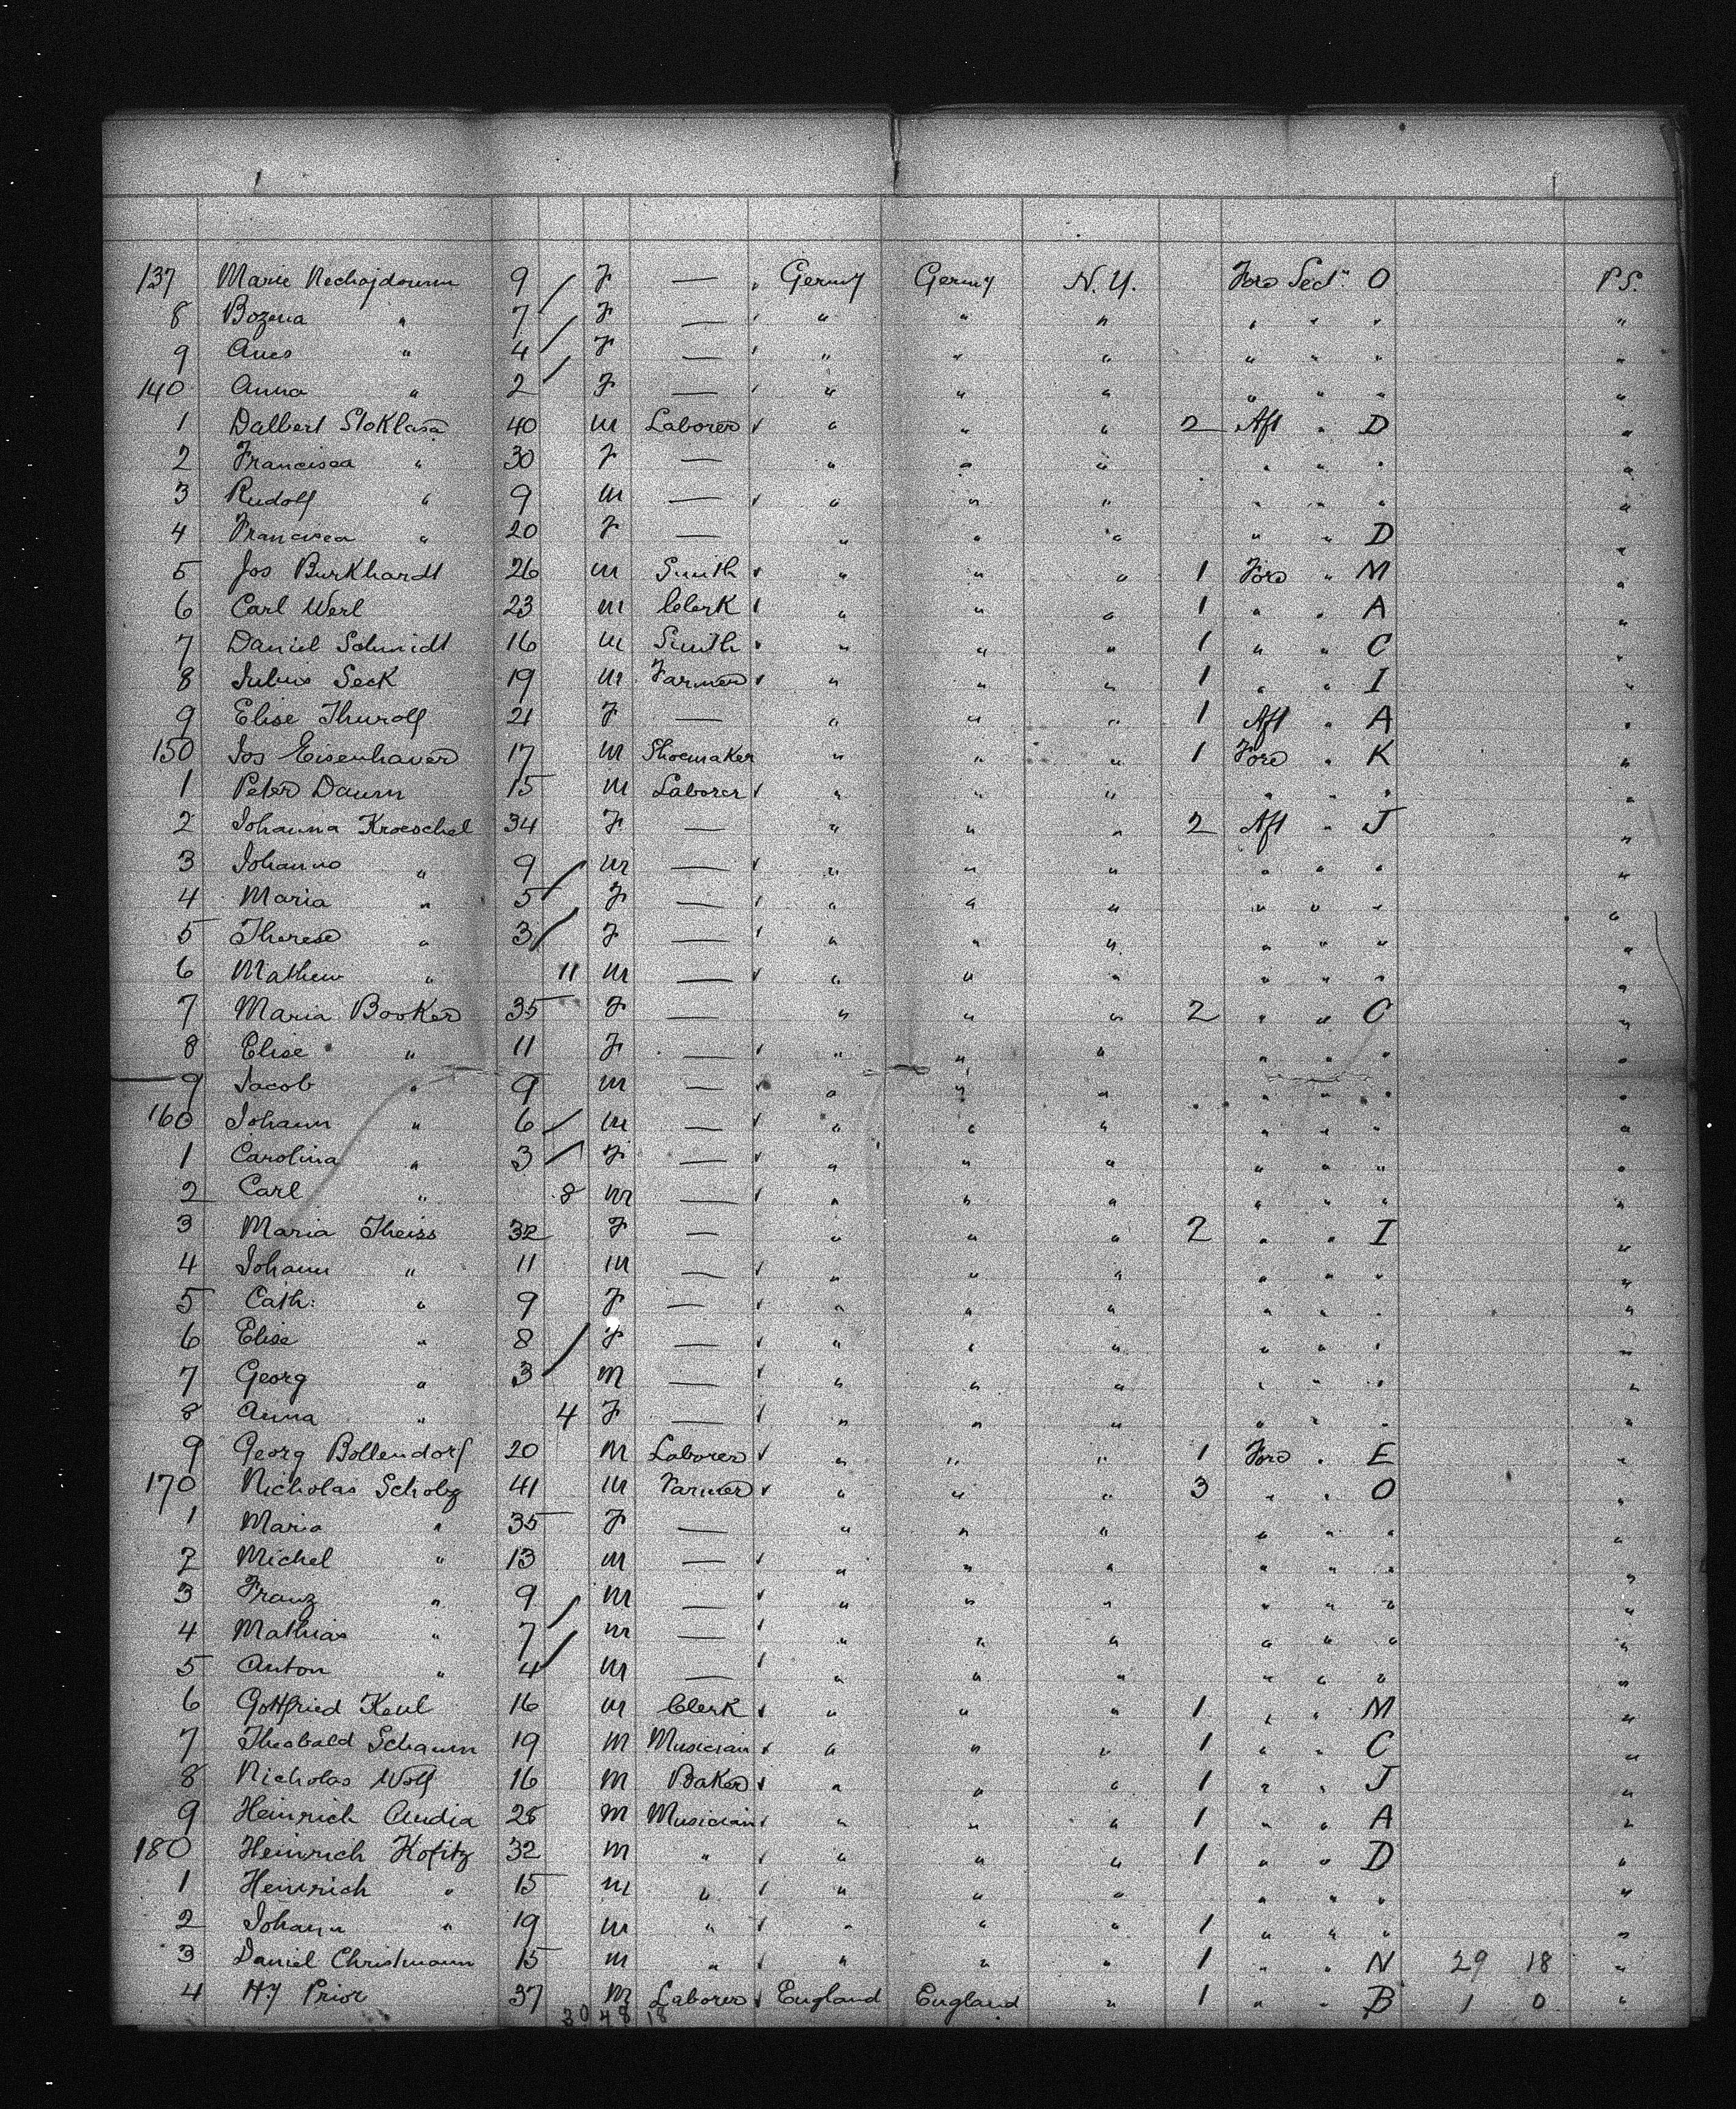 137 Marie Nechajdowna 9 F — Germy Germy N.Y. Ford Sect. O P.S.
8 Bozena " 7 F — " " " " " " "
9 Anes " 4 F — " " " " " " "
140 Anna " 2 F — " " " " " " "
1 Dalbert Stoklasa 40 M Laborer " " " 2 Aft " D "
2 Francisca " 30 F — " " " " " " "
3 Rudolf " 9 M — " " " " " " "
4 Francisca " 20 F — " " " " " D "
5 Jos Burkhardt 26 M Smith " " " 1 Ford " M "
6 Carl Werl 23 M Clerk " " " 1 " " A "
7 Daniel Schmidt 16 M Smith " " " 1 " " C "
8 Julius Seck 19 M Farmer " " " 1 " " I "
9 Elise Thurolf 21 F — " " " 1 Aft " A "
150 Jos Eisenhauer 17 M Shoemaker " " " 1 Ford " K "
1 Peter Daum 15 M Laborer " " " " " " "
2 Johanna Kroeschel 34 F — " " " 2 Aft " J "
3 Johanno " 9 M — " " " " " " "
4 Maria " 5 F — " " " " " " "
5 Therese " 3 F — " " " " " " "
6 Mathew " 11 M — " " " " " " "
7 Maria Booker 35 F — " " " 2 " " C "
8 Elise " 11 F — " " " " " " "
9 Jacob " 9 M — " " " " " " "
160 Johann " 6 M — " " " " " " "
1 Carolina " 3 F — " " " " " " "
2 Carl " 8 M — " " " " " " "
3 Maria Theiss 32 F — " " " 2 " " I "
4 Johann " 11 M — " " " " " " "
5 Cath: " 9 F — " " " " " " "
6 Elise " 8 F — " " " " " " "
7 Georg " 3 M — " " " " " " "
8 Anna " 4 F — " " " " " " "
9 Georg Bollendorf 20 M Laborer " " " 1 Ford " E "
170 Nicholas Scholzg 41 M Farmer " " " 3 " " O "
1 Maria " 35 F — " " " " " " "
2 Michel " 13 M — " " " " " " "
3 Franz " 9 M — " " " " " " "
4 Mathias " 7 M — " " " " " " "
5 Anton " 4 M — " " " " " " "
6 Gottfried Keul 16 M Clerk " " " 1 " " M "
7 Theobald Schaum 19 M Musician " " " 1 " " C "
8 Nicholas Wolf 16 M Baker " " " 1 " " J "
9 Heinrich Audia 25 M Musician " " " 1 " " A "
180 Heinrich Hofitz 32 M " " " " 1 " " D "
1 Heinrich " 15 M " " " " " " " "
2 Johann " 19 M " " " " 1 " " " "
3 Daniel Christmann 15 M " " " " 1 " " N 29 18 "
4 Hy Prior 37 M Laborer England England " 1 " " B 1 0 "
30 48 18